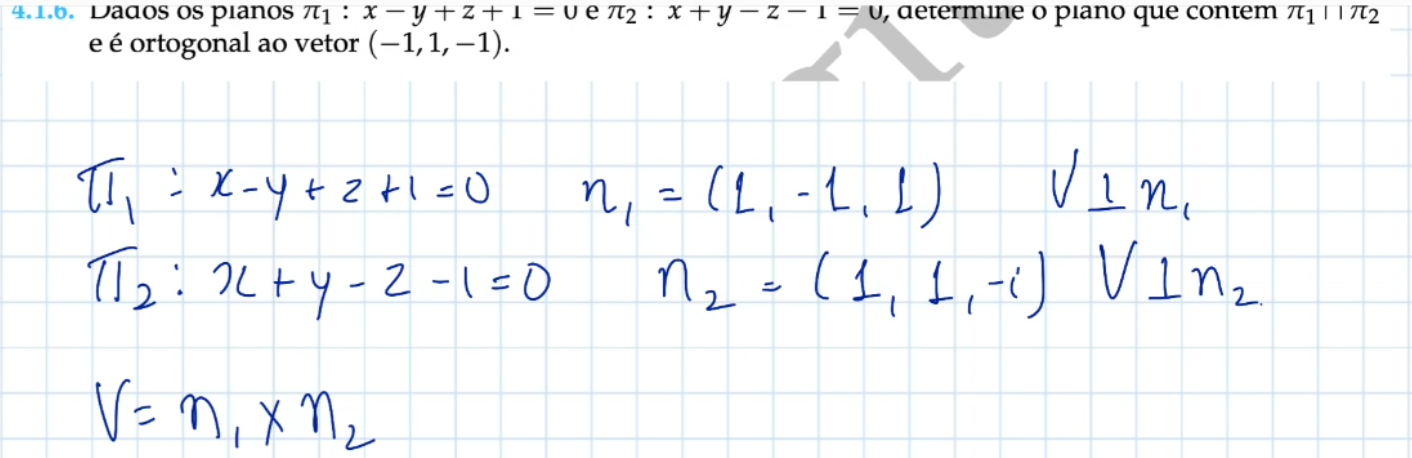 4.1.6. Dados os planos π₁ : x − y + z + 1 = 0 e π₂ : x + y − z − 1 = 0, determine o plano que contém π₁ ∩ π₂
e é ortogonal ao vetor (−1, 1, −1).
π₁ : x-y+z+1=0 n₁ = (1, -1, 1) V⊥n₁
π₂ : x+y-z-1=0 n₂ = (1, 1, -1) V⊥n₂.
V= n₁ x n₂